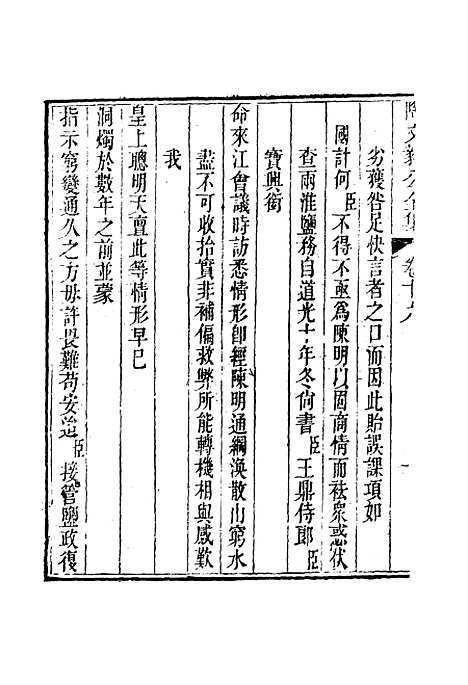 陶文毅公全集 卷十八
劣獲咎足快言者之口而因此貽誤課項如
國計何臣不得不亟爲陳明以固商情而祛衆惑伏
查兩淮鹽務自道光十年冬尙書臣王鼎侍郎臣
寶興銜
命來江會議時訪悉情形卽經陳明通綱渙散山窮水
盡不可收拾實非補偏救弊所能轉機相與感歎
我
皇上聰明天亶此等情形早已
洞燭於數年之前並蒙
指示窮變通久之方毋許畏難苟安迨臣接管鹽政復